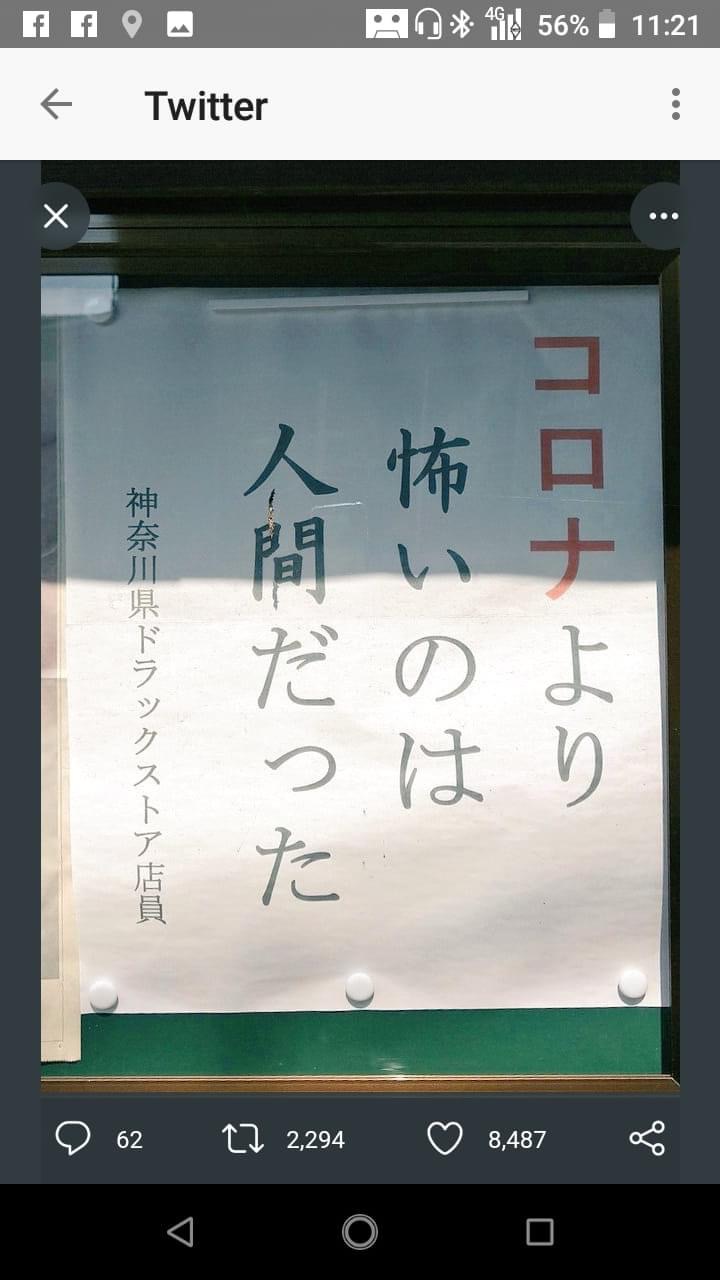 4G 56% 11:21
Twitter
コロナより
怖いのは
人間だった
神奈川県ドラックストア店員
62 2,294 8,487